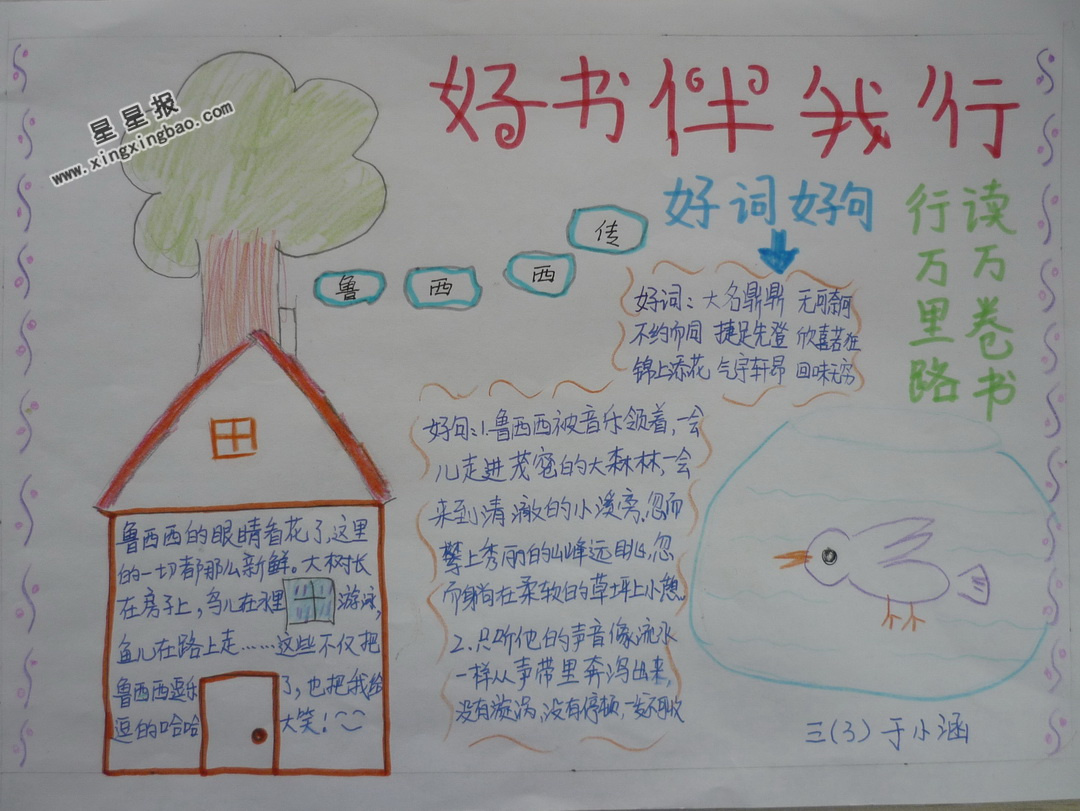 星星报
www.xingxingbao.com
好书伴我行
鲁西西传
好词好句
读万卷书
行万里路
好词:大名鼎鼎 无可奈何
不约而同 捷足先登 欣喜若狂
锦上添花 气宇轩昂 回味无穷
好句:1.鲁西西被音乐领着,一会
儿走进茂密的大森林,一会
来到清澈的小溪旁,忽而
攀上秀丽的山峰远眺,忽
而躺在柔软的草坪上小憩。
2.只听他的声音像流水
一样从声带里奔泻出来,
没有漩涡,没有停顿,一发不可收
鲁西西的眼睛看花了,这里
的一切都那么新鲜。大树长
在房子上,鸟儿在水里游泳,
鱼儿在路上走……这些不仅把
鲁西西逗乐了,也把我给
逗的哈哈大笑!
三(3)于小涵